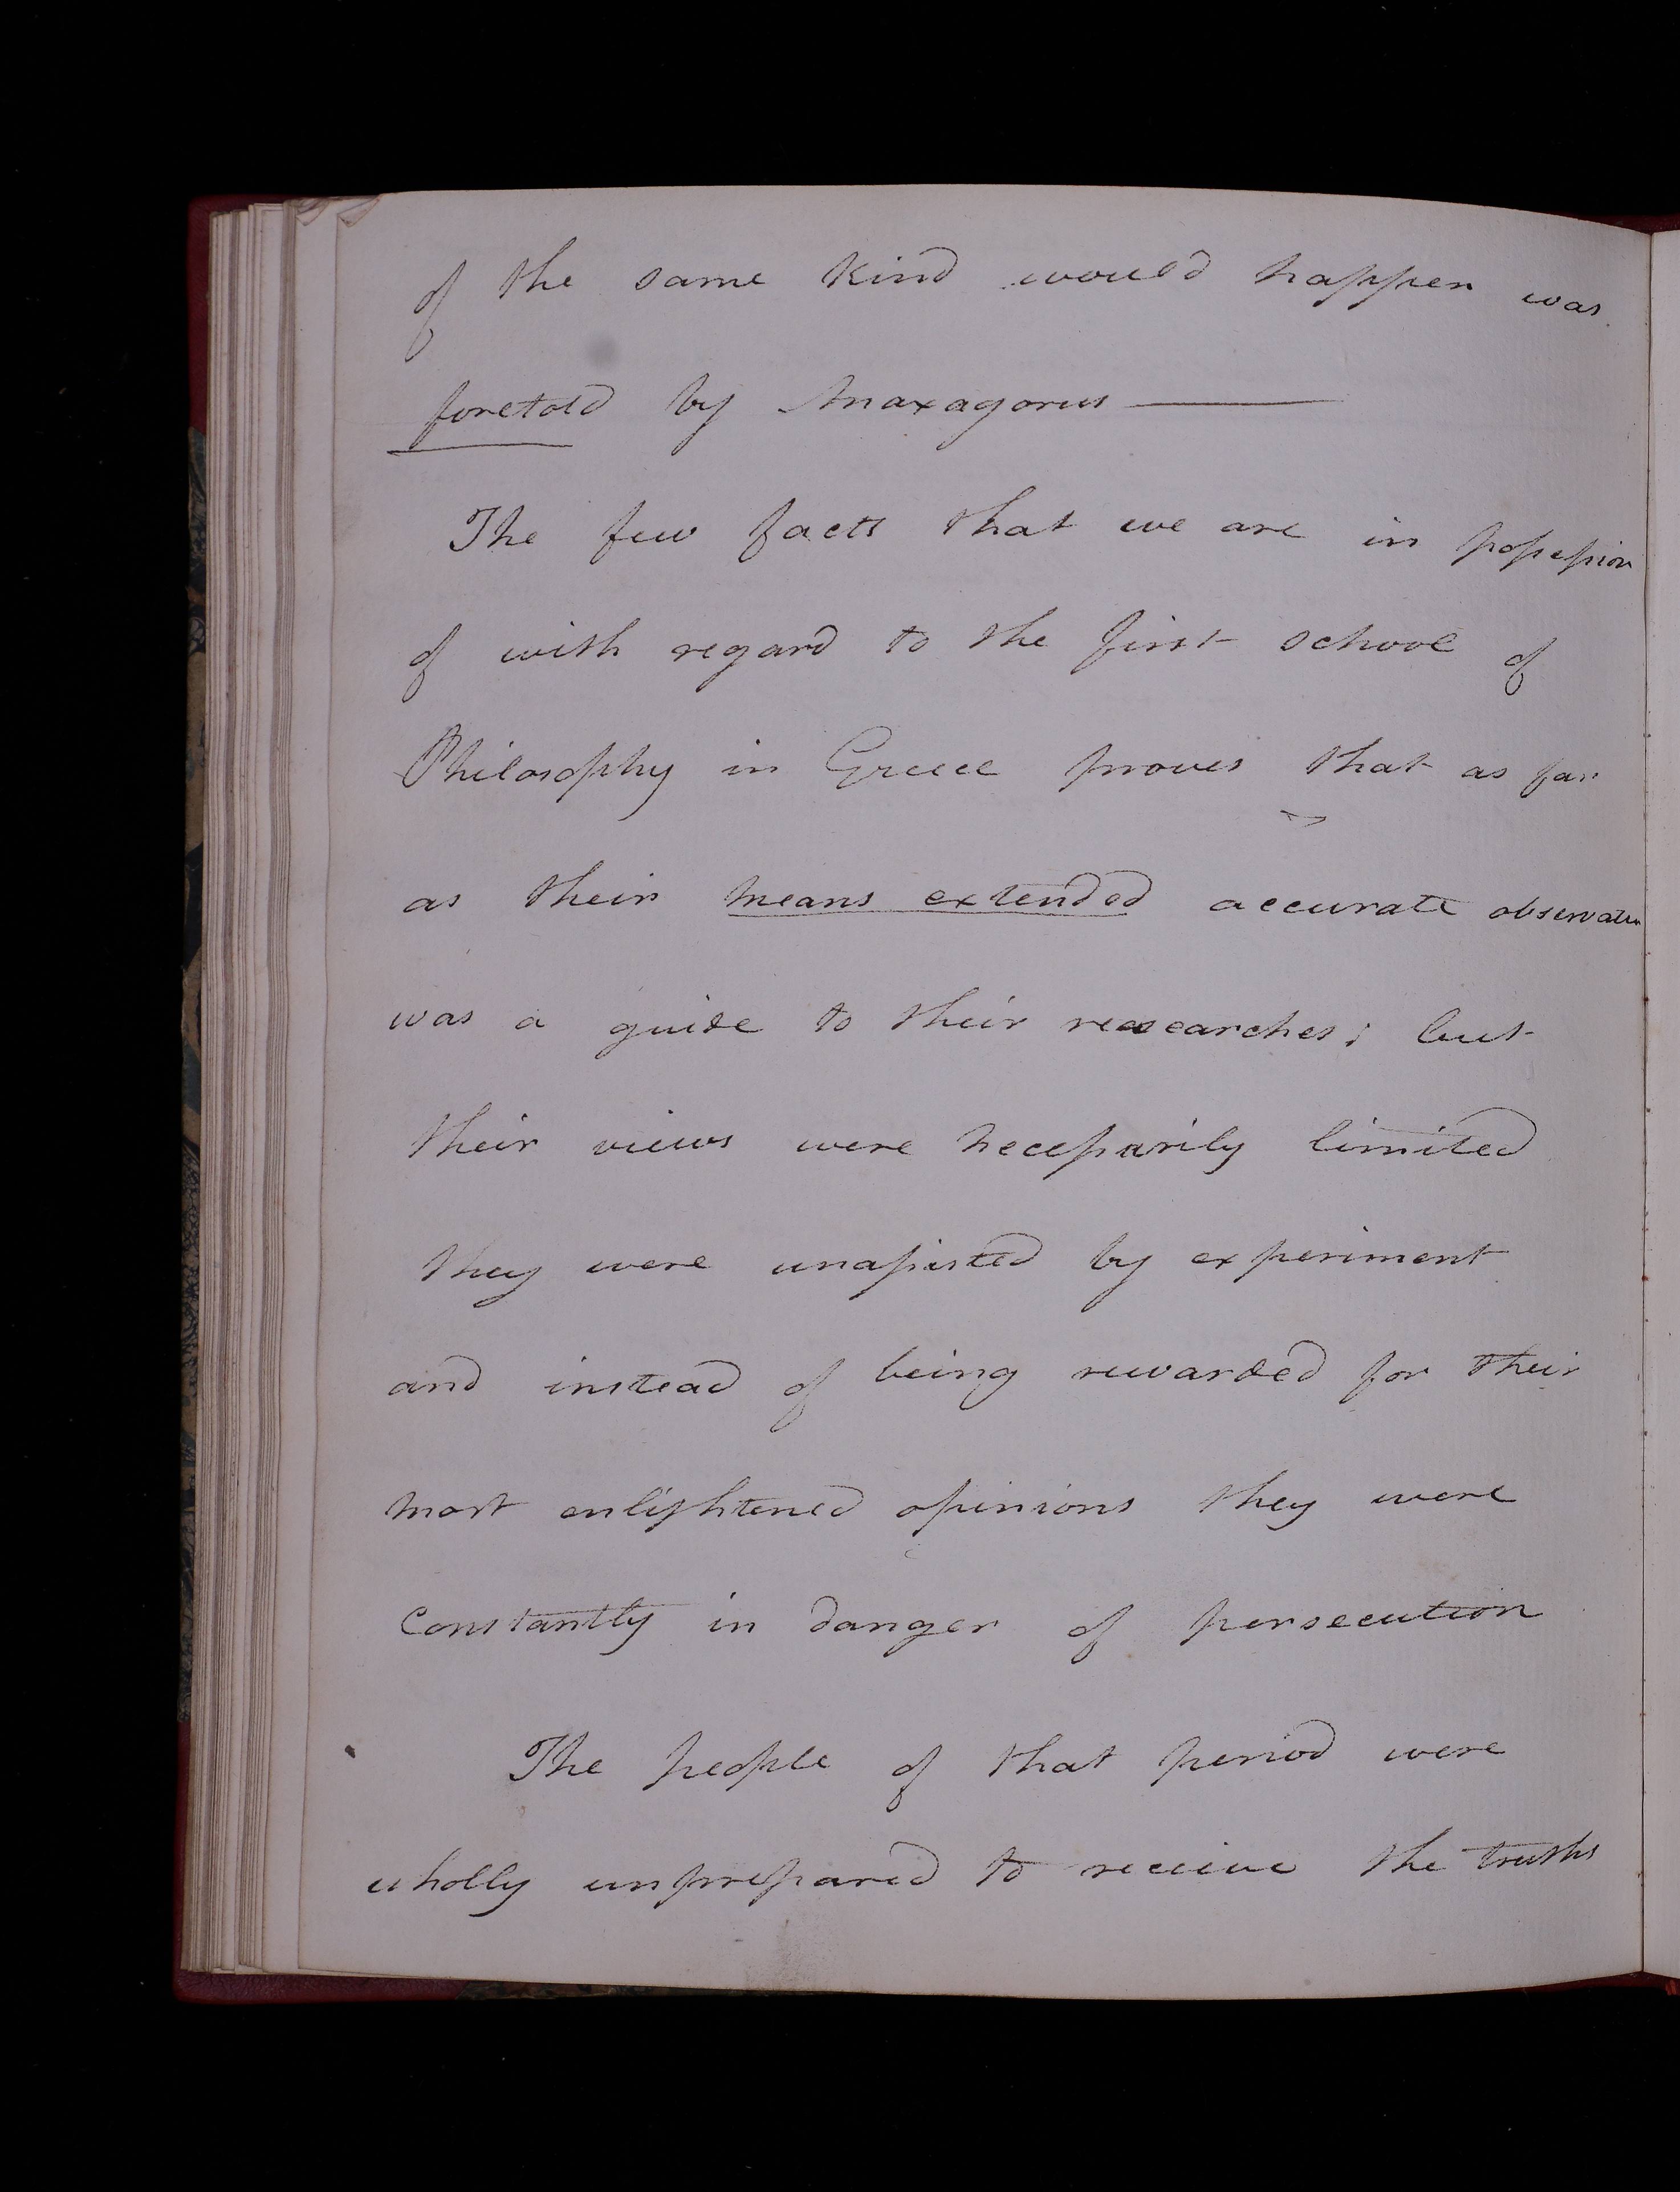 of the same kind would happen was
foretold by Anaxagoras —
The few facts that we are in possession
of with regard to the first school of
Philosophy in Greece proves that as far
as their means extended accurate observation
was a guide to their researches; but
their views were necessarily limited
they were unassisted by experiment
and instead of being rewarded for their
most enlightened opinions they were
Constantly in danger of persecution
The people of that period were
wholly unprepared to receive the truths